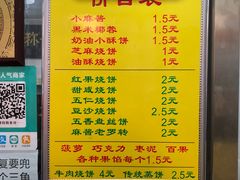 价目表
小麻酱 1.5元
黑米椰蓉 2元
奶油小酥饼 2元
芝麻烧饼 1.5元
油酥烧饼 1.5元
红果烧饼 2元
甜咸烧饼 2元
五仁烧饼 2元
豆沙烧饼 2.5元
五香老丝饼 2元
麻酱老罗转 2元
菠萝 巧克力 枣泥 百果
各种果馅每个1.5元
牛肉烧饼 4元 传统蒸饼 2.5元
称
人气商家
复要兜
个三角